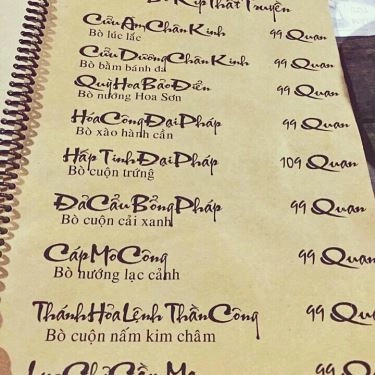 Bò Kíp Thất Truyền
Cửu Âm Chân Kinh 99 Quan
Bò lúc lắc
Cửu Dương Chân Kinh 99 Quan
Bò bằm bánh đa
Quỳ Hoa Bảo Điển 99 Quan
Bò nướng Hoa Sơn
Hóa Công Đại Pháp 99 Quan
Bò xào hành cần
Hấp Tinh Đại Pháp 109 Quan
Bò cuộn trứng
Đả Cẩu Bổng Pháp 99 Quan
Bò cuộn cải xanh
Cáp Mô Công 99 Quan
Bò nướng lạc cảnh
Thánh Hỏa Lệnh Thần Công 99 Quan
Bò cuộn nấm kim châm
99 Qu